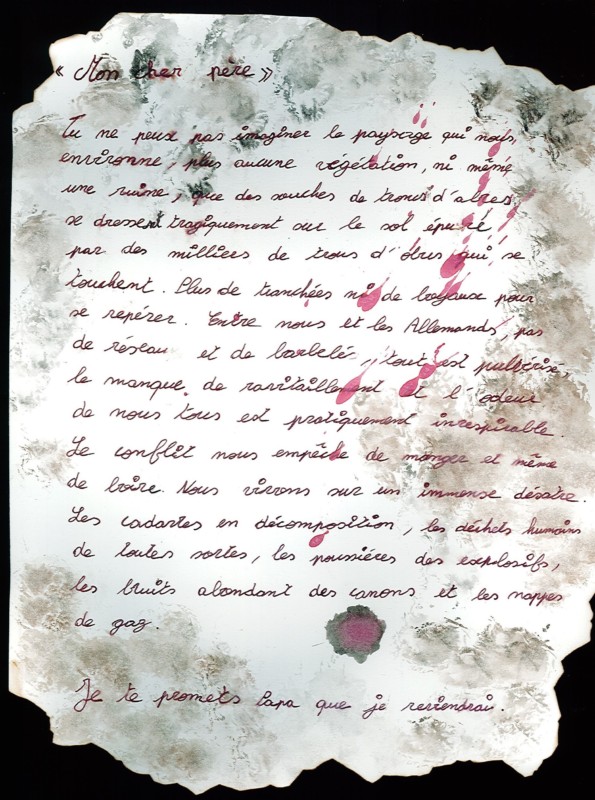 « Mon cher père »
Tu ne peux pas imaginer le paysage qui nous,
environne, plus aucune végétation, ni même
une ruine, que des souches de troncs d'arbres,
se dressent tragiquement sur le sol épuré
par des milliers de trous d'obus qui se
touchent. Plus de tranchées ni de boyaux pour
se repérer. Entre nous et les Allemands, pas
de réseau et de barbelé, tout est pulvérisé,
le manque de ravitaillement et l'odeur
de nous tous est pratiquement irrespirable.
Le conflit nous empêche de manger et même
de boire. Nous vivons sur un immense désatre.
Les cadavres en décomposition, les déchets humains
de toutes sortes, les poussiéres des explosifs,
les bruits abondant des canons et les nappes
de gaz.
Je te promets Papa que je reviendrai.